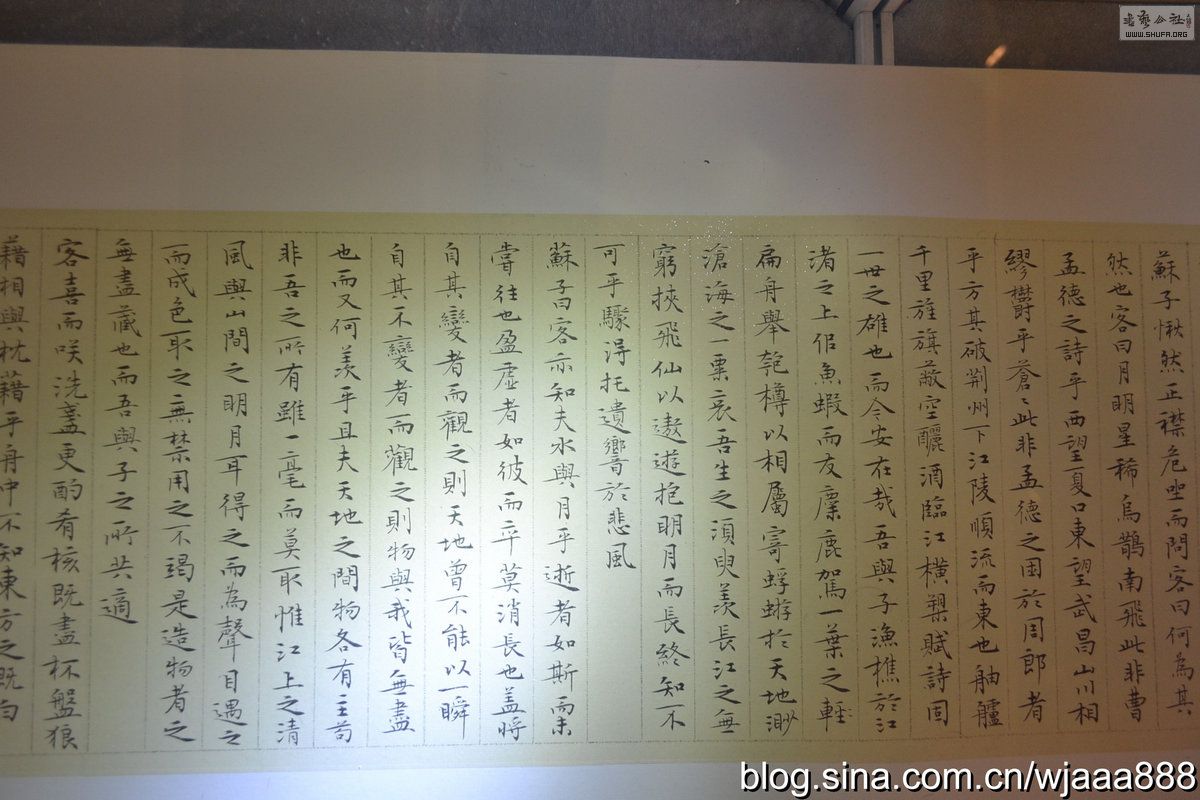 蘇子愀然正襟危坐而問客曰何為其
然也客曰月明星稀烏鵲南飛此非曹
孟德之詩乎西望夏口東望武昌山川相
繆鬱乎蒼〻此非孟德之困於周郎者
乎方其破荆州下江陵順流而東也舳艫
千里旌旗蔽空釃酒臨江橫槊賦詩固
一世之雄也而今安在哉吾與子漁樵於江
渚之上侣魚蝦而友麋鹿駕一葉之軽
扁舟舉匏樽以相屬寄蜉蝣於天地渺
滄海之一粟哀吾生之須臾羨長江之無
窮挾飛仙以遨遊抱明月而長終知不
可乎驟得托遺響於悲風
蘇子曰客亦知夫水與月乎逝者如斯而未
嘗往也盈虛者如彼而卒莫消長也盖將
自其變者而觀之則天地曾不能以一瞬
自其不變者而觀之則物與我皆無盡
也而又何羨乎且夫天地之間物各有主苟
非吾之所有雖一毫而莫取惟江上之清
風與山間之明月耳得之而為聲目遇之
而成色取之無禁用之不竭是造物者之
無盡藏也而吾與子之所共適
客喜而咲洗盞更酌肴核既盡杯盤狼
藉相與枕藉乎舟中不知東方之既白
书艺公社
WWW.SHUFA.ORG
blog.sina.com.cn/wjaaa888